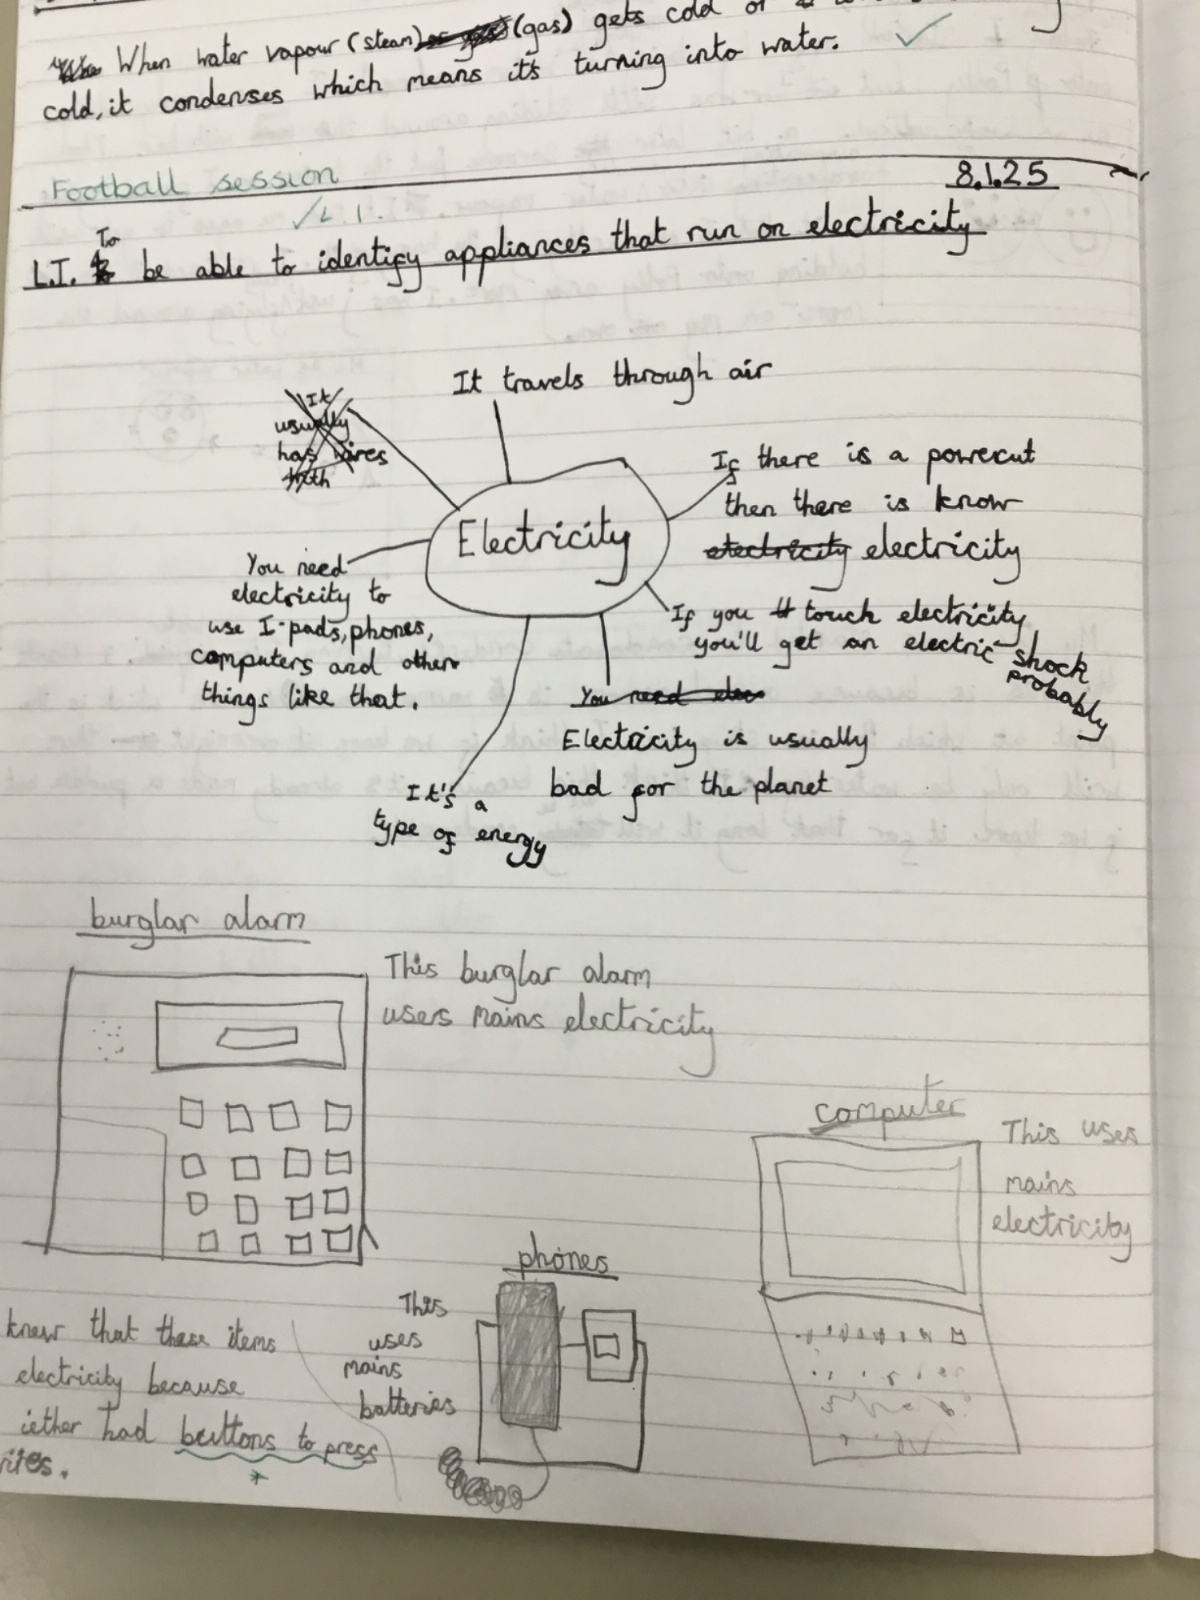 When water vapour (steam) (gas) gets cold or
cold, it condenses which means it's turning into water.
Football session
L.I.
8.1.25
L.I. To be able to identify appliances that run on electricity
It travels through air
It
usually
has wires
with
If there is a powercut
then there is know
electricity electricity
Electricity
You need
electricity to
use I-pads, phones,
computers and other
things like that.
If you touch electricity
you'll get an electric shock
probably
You need elec
Electricity is usually
bad for the planet
It's a
type of energy
burglar alarm
This burglar alarm
users mains electricity
computer
This uses
mains
electricity
phones
This
uses
mains
batteries
knew that these items
electricity because
iether had buttons to press